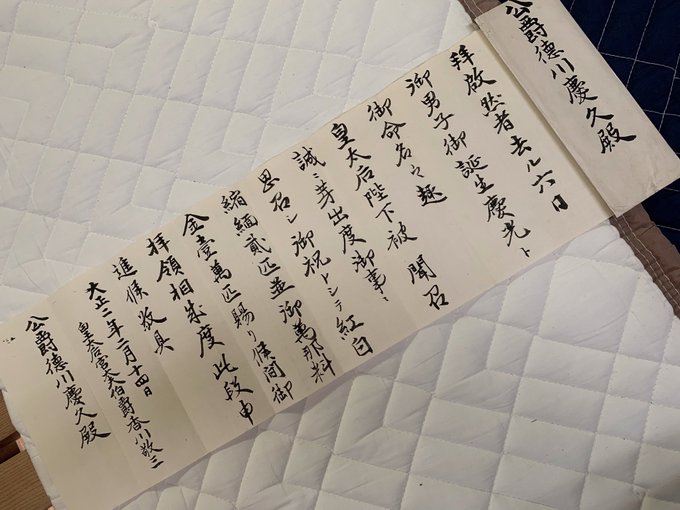 公爵徳川慶久殿
拜啟然者去ル六日
御男子御誕生慶光ト
御命名之趣
皇太后陛下被 聞召
誠ニ芽出度御事ニ
思召シ御祝トシテ紅白
縮緬貳匹並御萬那料
金壹萬匹賜リ候間御
拝領相成度此段申
進候敬具
大正二年二月十四日
皇太后宮大夫伯爵香川敬三
公爵徳川慶久殿